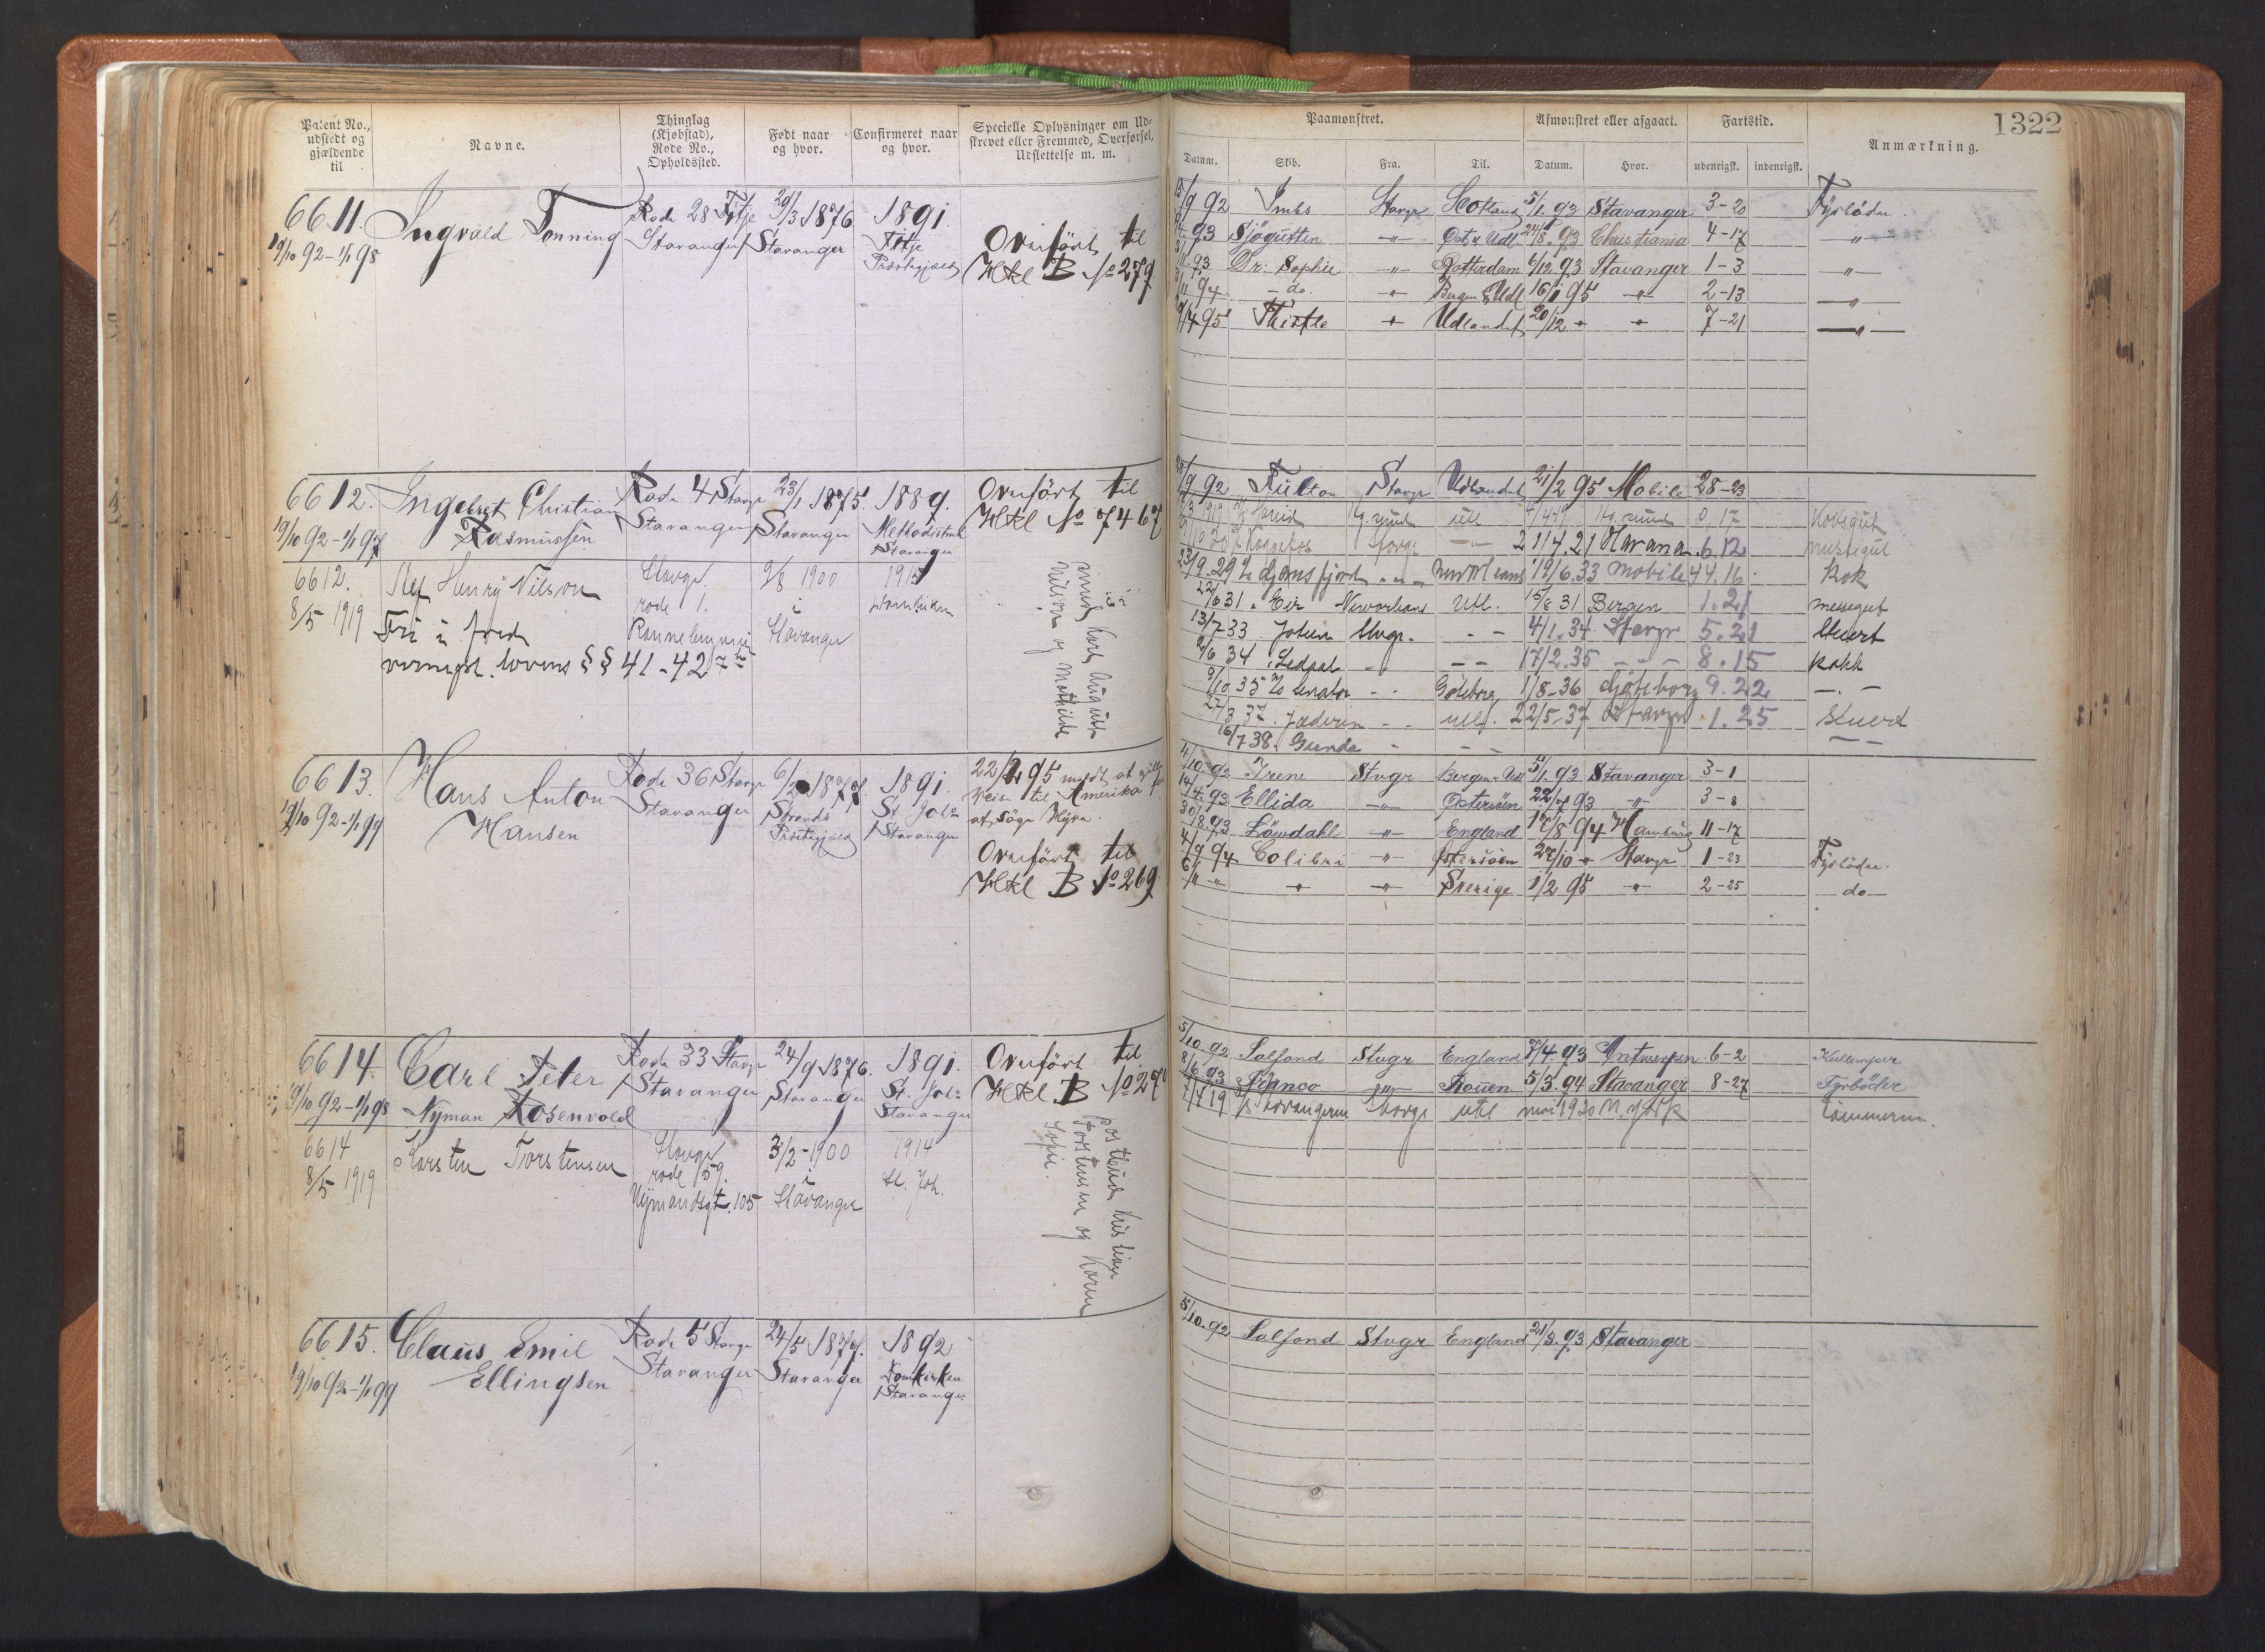 1322
Patent No., udstedt og gjældende til
Navne.
Thinglag (Kjøbstad), Rode No., Opholdssted.
Født naar og hvor.
Confirmeret naar og hvor.
Specielle Oplysninger om Udskrevet eller Fremmed, Overførsel, Udslettelse m. m.
Paamønstret.
Afmønstret eller afgaaet.
Fartstid.
Anmærkning.
Datum. Skib. Fra. Til. Datum. Hvor. udenrigsk. indenrigsk.
6611. Ingvald Tonning Rode 28 Fitje 29/3 1876 1891
19/10 92-1/1 98 Stavanger Stavanger Fitje
Præstegjæld
Overført til
Htel B No 279
/9 92 Imbs Stavgr Scotland 5/1. 93 Stavanger 3-20 Fyrbøder.
93 Sjøgutten -"- Øst. & Udl. 24/8. 93 Christiania 4-17 -"-
93 Dr: Sophie -"- Rotterdam 6/12. 93 Stavanger 1-3 -"-
/11 94. -do. -"- Bergen & Udl 16/1 95 -"- 2-13 -"-
/4 95 Thistle -"- Udlandet 20/12 " " 7-21 -"-
6612. Ingebret Christian Rode 4 Stavgr 23/1 1875. 1889.
19/10 92-1/1 97 Rasmussen Stavanger Stavanger Methodistmk
Stavanger
Overført til
Htel No 7467
6612. Alf Henry Nilson Stavgr. 9/8 1900 1915
8/5 1919 rode 1. i Domkirken
Fri i fred Stavanger
vernepl. lovens §§ 41-42
murer Karl August
Nilson og Mathilde
/9 92 Fulton Stavgr Udlandet 21/2 95 Mobile 28-23
utl 0.17 Kobsgut
Stavgr -"- 21/4.21 Havana 6.12 messegut
23/9.29 New Orleans 19/6.33 Mobile 44.16 Kok
22/6 31 " Eir Neworleans Utl. 15/8 31 Bergen 1.21 messegut
13/7 33 Jotun Stvgr. - - 4/1.34 Stavgr 5.21 Stuert
2/6 34 " Ledaal - - - 17/2.35 - " - 8.15 kokk
9/10 35 Senator - - Göteborg 1/8-36 Göteborg 9.22 -.-
27/3 37. Jæderen - - utl. 22/5-37 Stavgr 1.25 Stuert
16/7 38. Gunda - - - - -
6613. Hans Anton Rode 36 Stavgr 6/2 1877. 1891.
19/10 92-1/1 99 Hansen Stavanger Strands St Joh:
Præstegjæld Stavanger
22/2 95 meldt at ville
reise til Amerika for
at søge Hyre.
Overført til
Htel B No 269
4/10-92 Irene Stvgr Bergen-Udl 5/1. 93 Stavanger 3-1
14/4.93 Ellida -"- Østersøen 22/7 93 -"- 3-8
30/8 93 Løwdahl -"- England 17/8 94 Hamburg 11-17
4/9 94 Colibri -"- Østersøen 27/10 " Stavgr 1-23 Fyrbøder.
6/11 " " -"- Sverige 1/2 95 -"- 2-25 -do-
6614. Carl Peter Rode 33 Stavgr 24/9 1876. 1891.
19/10 92-1/1 98 Nyman Rosenvold Stavanger Stavanger St. Joh:
Stavanger
Overført til
Htel B No 29
6614 Karsten Torstensen Stavgr 3/2-1900 1914
8/5 1919 rode 159. i St. Joh.
Nymandsgt. 105 Stavanger
postbud Kristian
Torstensen og Karen
Sofie.
5/10-92 Salfond Stvgr England 7/4. 93 Antwerpen 6-2 Kullemper
8/6 93 Franco -"- Rouen 5/3. 94 Stavanger 8-27 Fyrbøder
7/4 19 Stavangeren Stavgr utl mai 1920 N. york tømmerm.
6615. Claus Emil Rode 5 Stavgr 24/5 1877. 1892
19/10 92-1/1 99 Ellingsen Stavanger Stavanger Domkirken
Stavanger
5/10-92 Salfond Stvgr England 21/3. 93 Stavanger